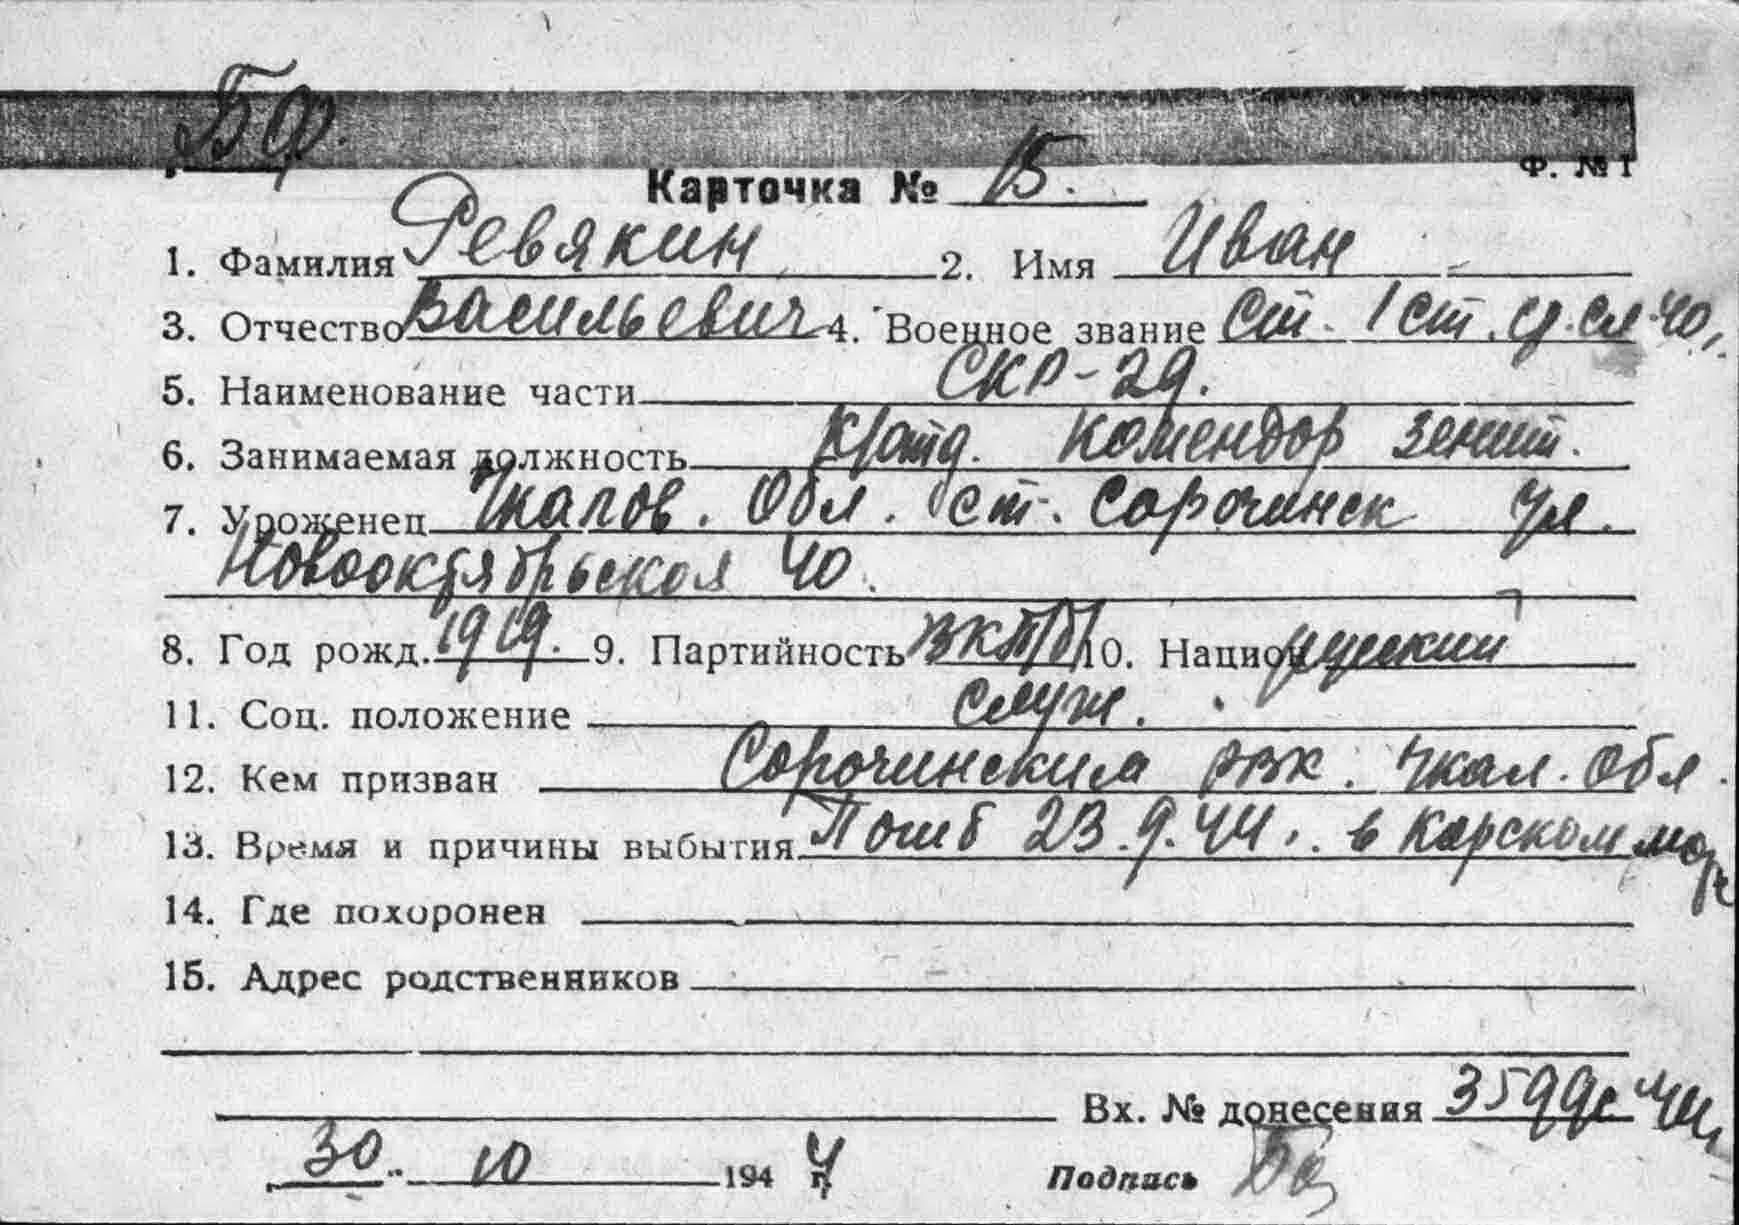 БФ.
Ф. № 1
Карточка № 15.
1. Фамилия Ревякин 2. Имя Иван
3. Отчество Васильевич 4. Военное звание Ст. 1 ст. ср. сл. 40 г.
5. Наименование части СКР-29.
6. Занимаемая должность Комендор зенит.
7. Уроженец Чкалов. обл. ст. Сорочинск ул.
Новооктябрьская 40.
8. Год рожд. 1919. 9. Партийность ВКП/б/ 10. Национ русский
11. Соц. положение служ.
12. Кем призван Сорочинским РВК. Чкал. обл.
13. Время и причины выбытия Погиб 23.9.44. в Карском море
14. Где похоронен
15. Адрес родственников
Вх. № донесения 3599с 44
30. 10 1944 г. Подпись